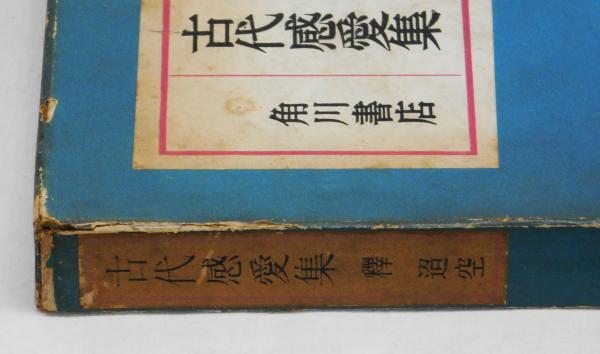 古代感愛集
角川書店
古代感愛集 釋 迢空